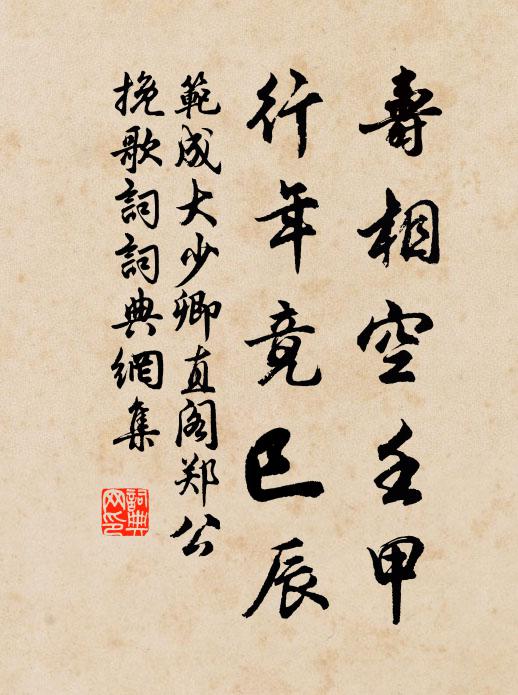 壽相空壬甲
行年竟巳辰
範成大少卿直阁郑公
挽歌詞詞典網集
詞典網印